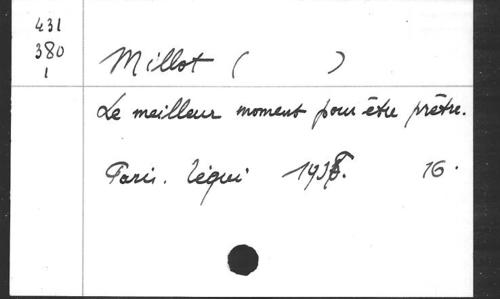 431
380
1
Millot ( )
Le meilleur moment pour être prêtre.
Paris. Téqui 16.